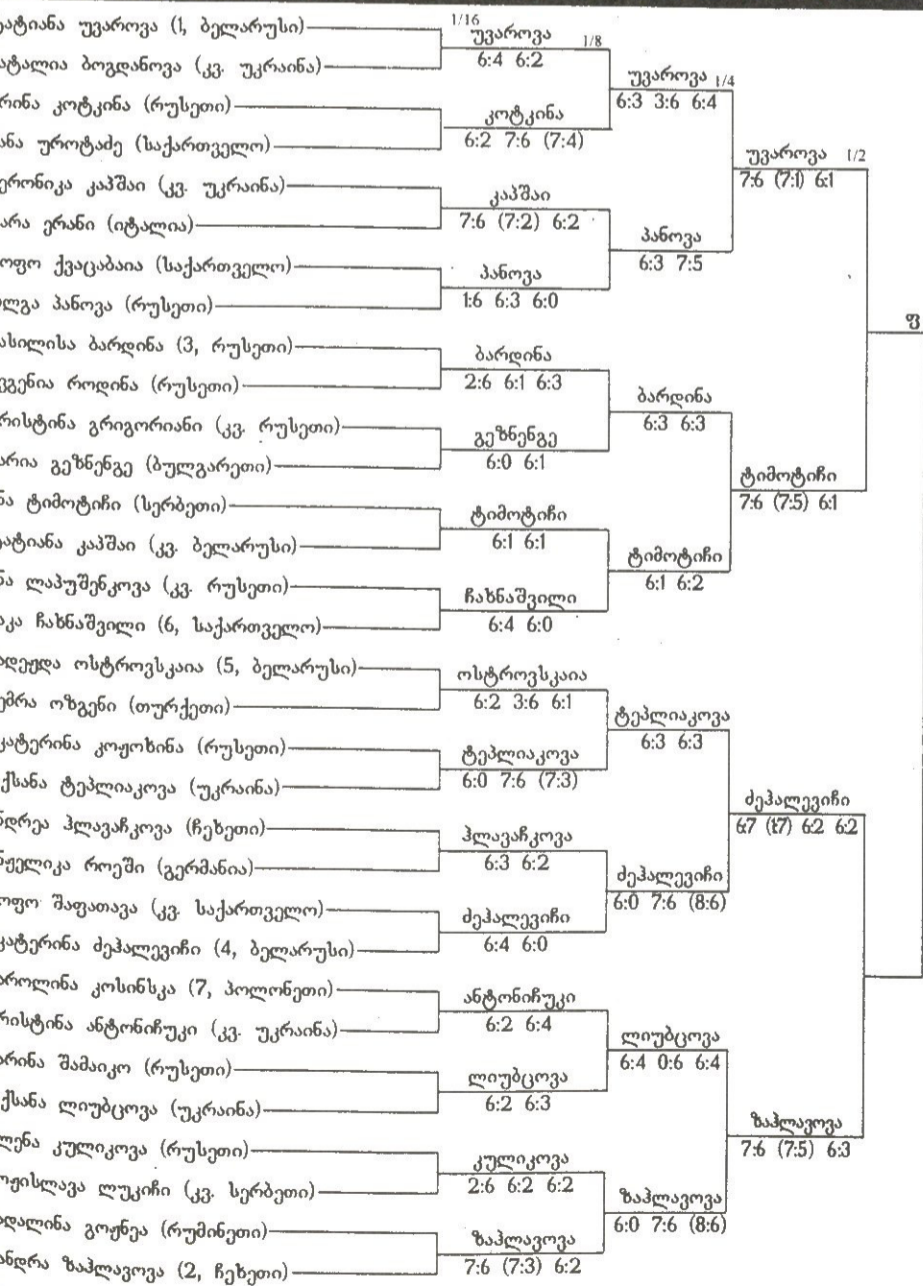 ტატიანა უვაროვა (1, ბელარუსი)
ატალია ბოგდანოვა (კვ. უკრაინა)
რინა კოტკინა (რუსეთი)
ანა უროტაძე (საქართველო)
ერონიკა კაპშაი (კვ. უკრაინა)
არა ერანი (იტალია)
ოფო ქვაცაბაია (საქართველო)
ლგა პანოვა (რუსეთი)
ასილისა ბარდინა (3, რუსეთი)
ვგენია როდინა (რუსეთი)
რისტინა გრიგორიანი (კვ. რუსეთი)
არია გეზნენგე (ბულგარეთი)
ნა ტიმოტიჩი (სერბეთი)
ტატიანა კაპშაი (კვ. ბელარუსი)
ნა ლაპუშენკოვა (კვ. რუსეთი)
აკა ჩახნაშვილი (6, საქართველო)
ადეჟდა ოსტროვსკაია (5, ბელარუსი)
ემრა ოზგენი (თურქეთი)
კატერინა კოჟოხინა (რუსეთი)
ქსანა ტეპლიაკოვა (უკრაინა)
ნდრეა ჰლავაჩკოვა (ჩეხეთი)
ნჟელიკა როეში (გერმანია)
ოფო შაფათავა (კვ. საქართველო)
კატერინა ძეჰალევიჩი (4, ბელარუსი)
აროლინა კოსინსკა (7, პოლონეთი)
რისტინა ანტონიჩუკი (კვ. უკრაინა)
არინა შამაიკო (რუსეთი)
ქსანა ლიუბცოვა (უკრაინა)
ლენა კულიკოვა (რუსეთი)
ოჟისლავა ლუკიჩი (კვ. სერბეთი)
ადალინა გოჟნეა (რუმინეთი)
ანდრა ზაჰლავოვა (2, ჩეხეთი)
1/16
უვაროვა
6:4 6:2
კოტკინა
6:2 7:6 (7:4)
კაპშაი
7:6 (7:2) 6:2
პანოვა
1:6 6:3 6:0
ბარდინა
2:6 6:1 6:3
გეზნენგე
6:0 6:1
ტიმოტიჩი
6:1 6:1
ჩახნაშვილი
6:4 6:0
ოსტროვსკაია
6:2 3:6 6:1
ტეპლიაკოვა
6:0 7:6 (7:3)
ჰლავაჩკოვა
6:3 6:2
ძეჰალევიჩი
6:4 6:0
ანტონიჩუკი
6:2 6:4
ლიუბცოვა
6:2 6:3
კულიკოვა
2:6 6:2 6:2
ზაჰლავოვა
7:6 (7:3) 6:2
1/8
უვაროვა
6:3 3:6 6:4
პანოვა
6:3 7:5
ბარდინა
6:3 6:3
ტიმოტიჩი
6:1 6:2
ტეპლიაკოვა
6:3 6:3
ძეჰალევიჩი
6:0 7:6 (8:6)
ლიუბცოვა
6:4 0:6 6:4
ზაჰლავოვა
6:0 7:6 (8:6)
1/4
უვაროვა
7:6 (7:1) 6:1
ტიმოტიჩი
7:6 (7:5) 6:1
ძეჰალევიჩი
6:7 (1:7) 6:2 6:2
ზაჰლავოვა
7:6 (7:5) 6:3
1/2
ფ